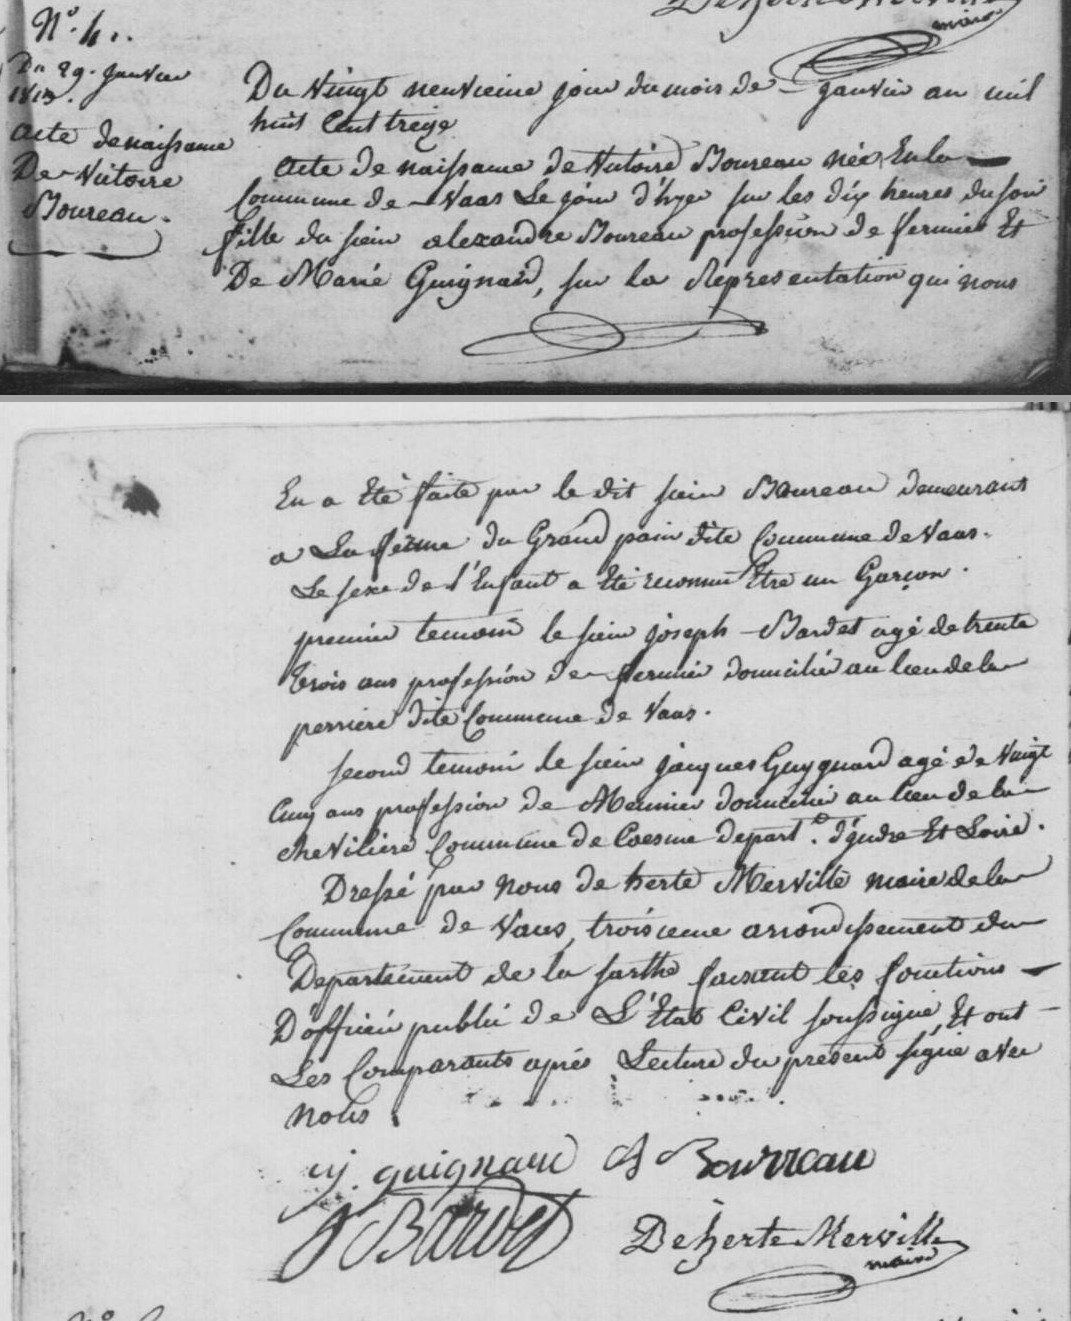 N.° 4.
Du 29. Janvier
1813.
acte de naissance
De Victoire
Boureau.
Du Vingt neuvieme jour du mois de janvier an mil
huit Cent treize
acte de naissance de Victoire Boureau née En la
Commune de Vaas Le jour d'hyer sur les dix heures du soir
fille du sieur alexandre Boureau profession de fermier Et
De Marie Guignard, sur la Representation qui nous
En a Eté faite par le dit sieur Boureau demeurant
a La ferme du Grand pain dite Commune de Vaas.
Le sexe de l'Enfant a Eté reconnu Etre un Garçon.
premier temoin le sieur joseph Bardet agé de trente
trois ans profession de fermier domicilié au lieu de la
perriere dite Commune de Vaas.
second temoin le sieur jacques Guygnard agé de Vingt
Cinq ans profession de Meunier domicilié au lieu de la
cheviliere Commune de Coesme depart.e d'jndre Et Loire.
Dressé par nous de herte Merville maire de la
Commune de Vaas, troisieme arrondissement du
Departement de la sarthe faisant les fonctions
D'officier public de L'Etat Civil soussigné, Et ont
Les Comparants aprés Lecture du present signé avec
nous.
j. guignard A Bourreau
J Bardet De herte Merville
maire